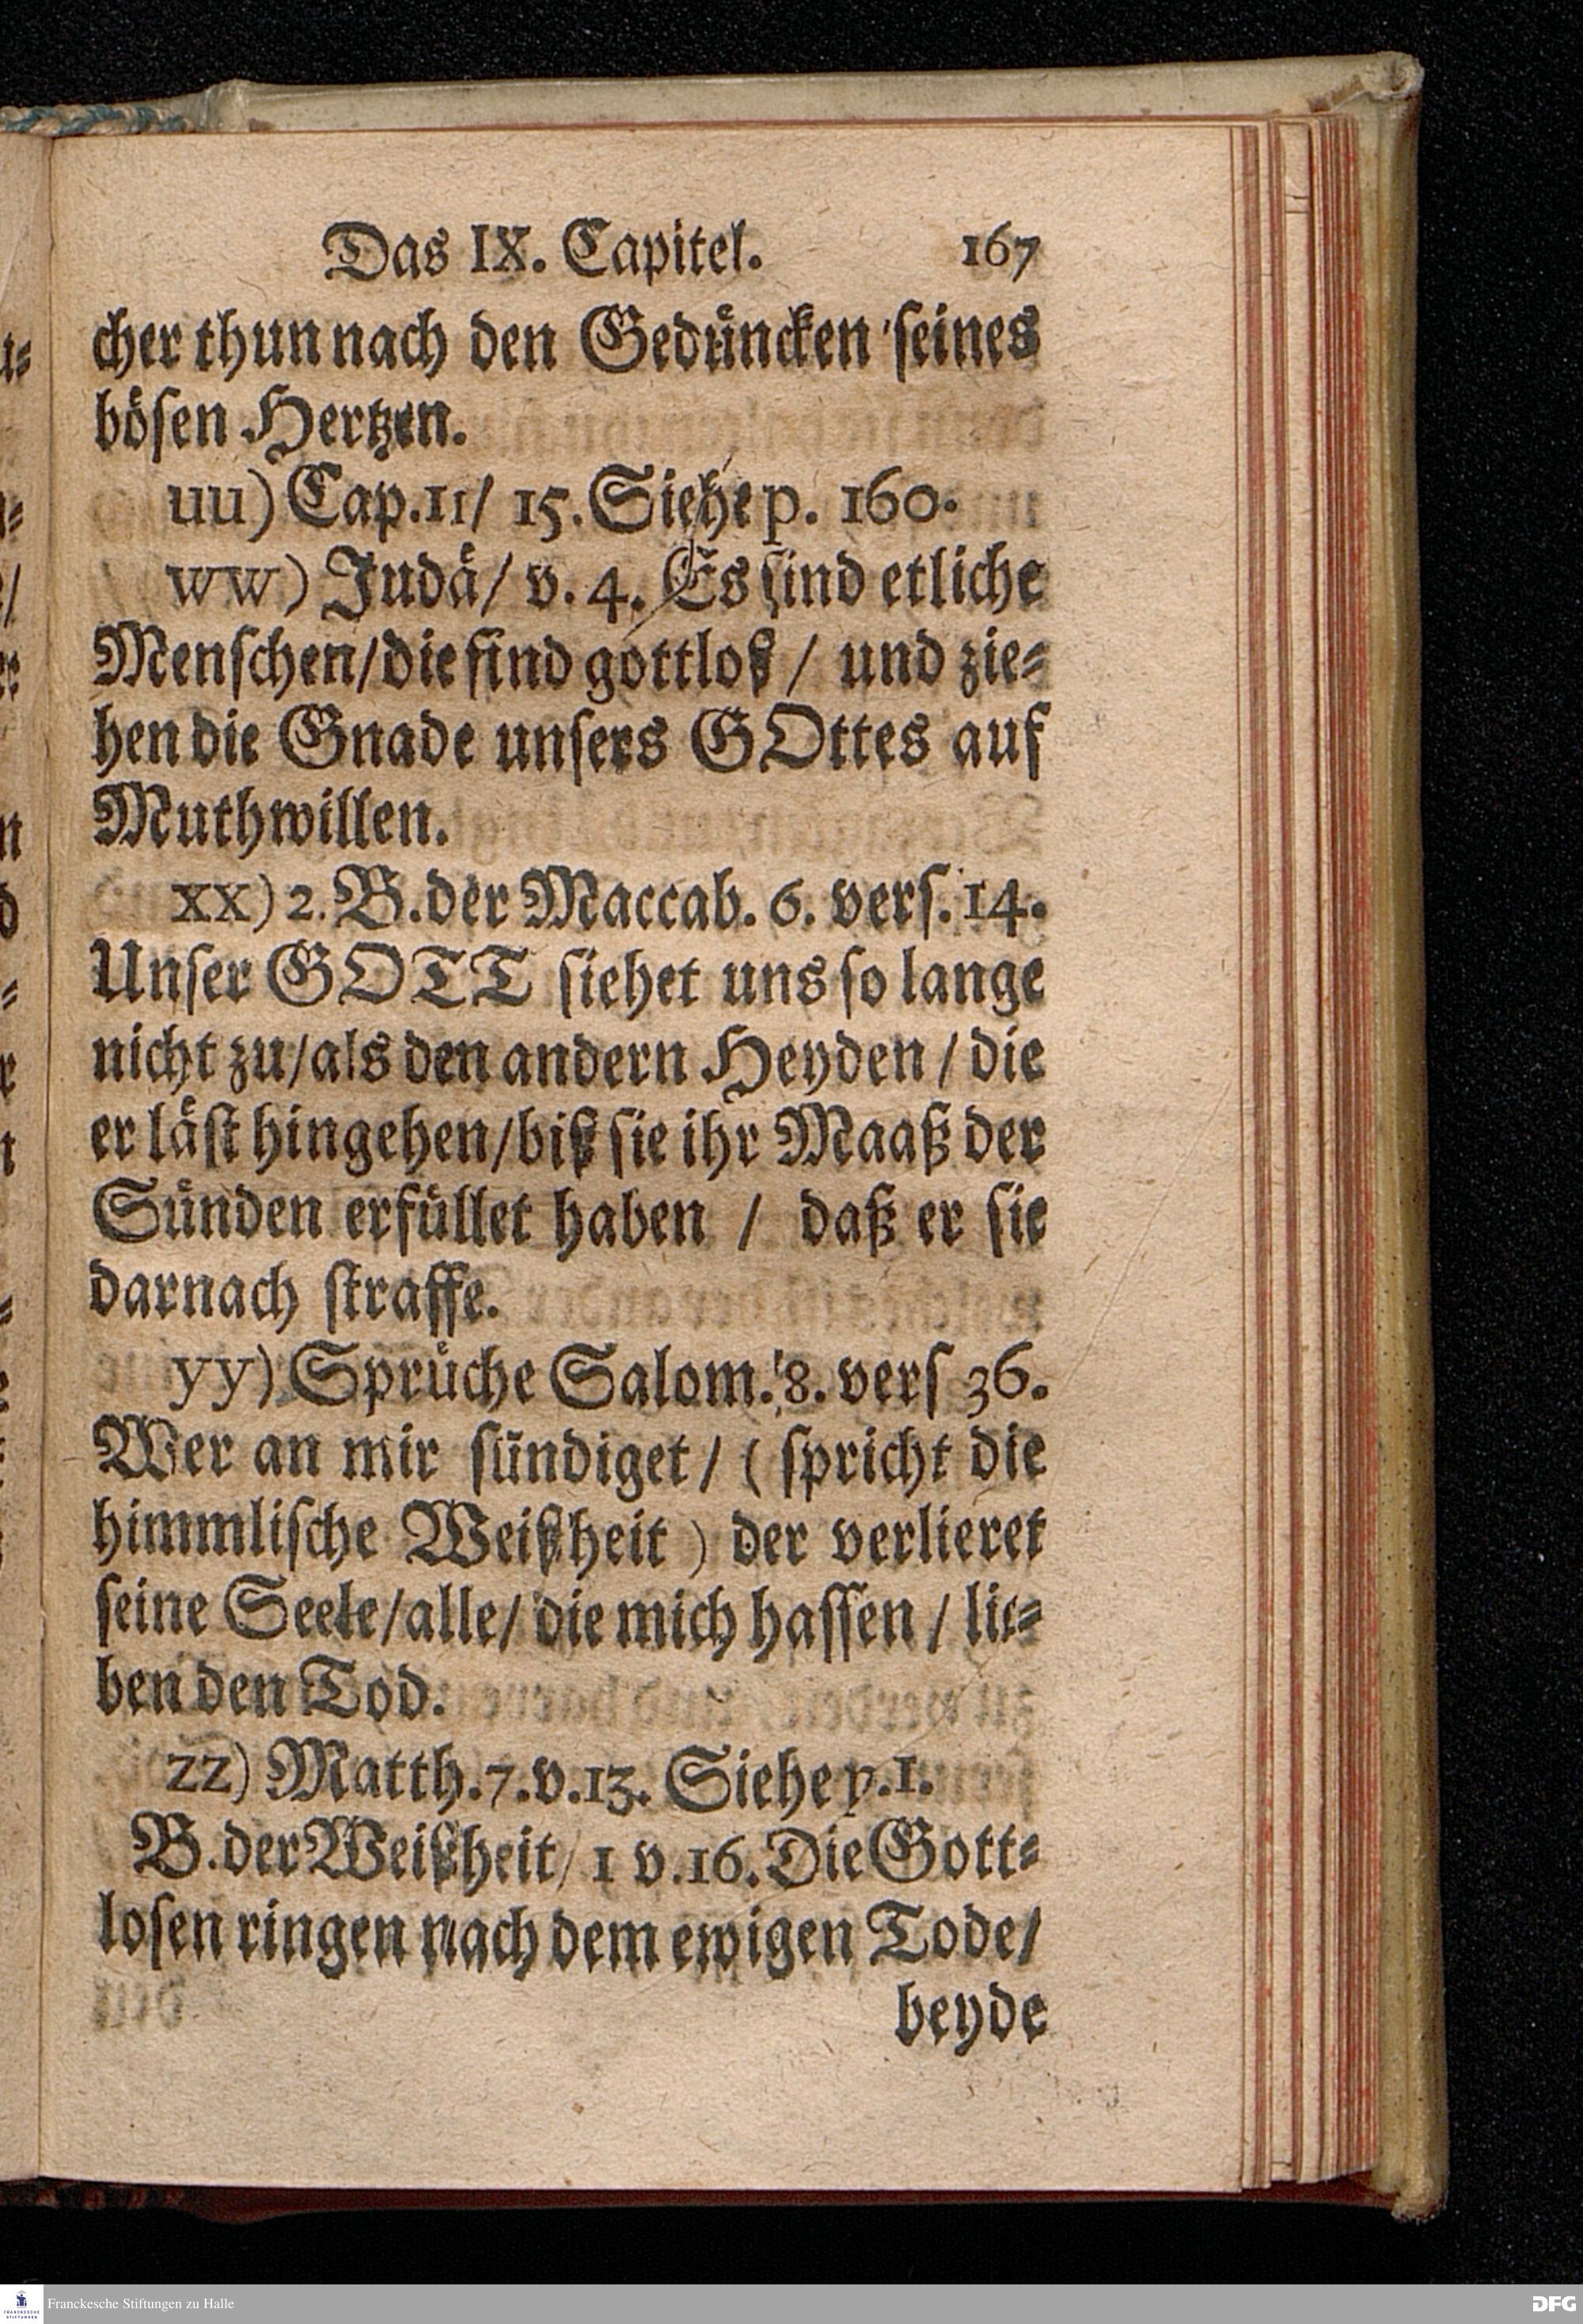 Das IX. Capitel. 167
cher thun nach den Gedüncken seines
bösen Hertzen.
uu) Cap. 11/ 15. Siehe p. 160.
ww) Judä/ v. 4. Es sind etliche
Menschen/ die sind gottloß/ und zie-
hen die Gnade unsers GOttes auf
Muthwillen.
xx) 2. B. der Maccab. 6. vers. 14.
Unser GOTT siehet uns so lange
nicht zu/ als den andern Heyden/ die
er läst hingehen/ biß sie ihr Maaß der
Sünden erfüllet haben / daß er sie
darnach straffe.
yy) Sprüche Salom. 8. vers 36.
Wer an mir sündiget/ (spricht die
himmlische Weißheit) der verlieret
seine Seele/ alle/ die mich hassen / lie-
ben den Tod.
zz) Matth. 7. v. 13. Siehe p. 1.
B. der Weißheit/ 1 v. 16. Die Gott-
losen ringen nach dem ewigen Tode/
beyde
FRANCKESCHE STIFTUNGEN
Franckesche Stiftungen zu Halle
DFG